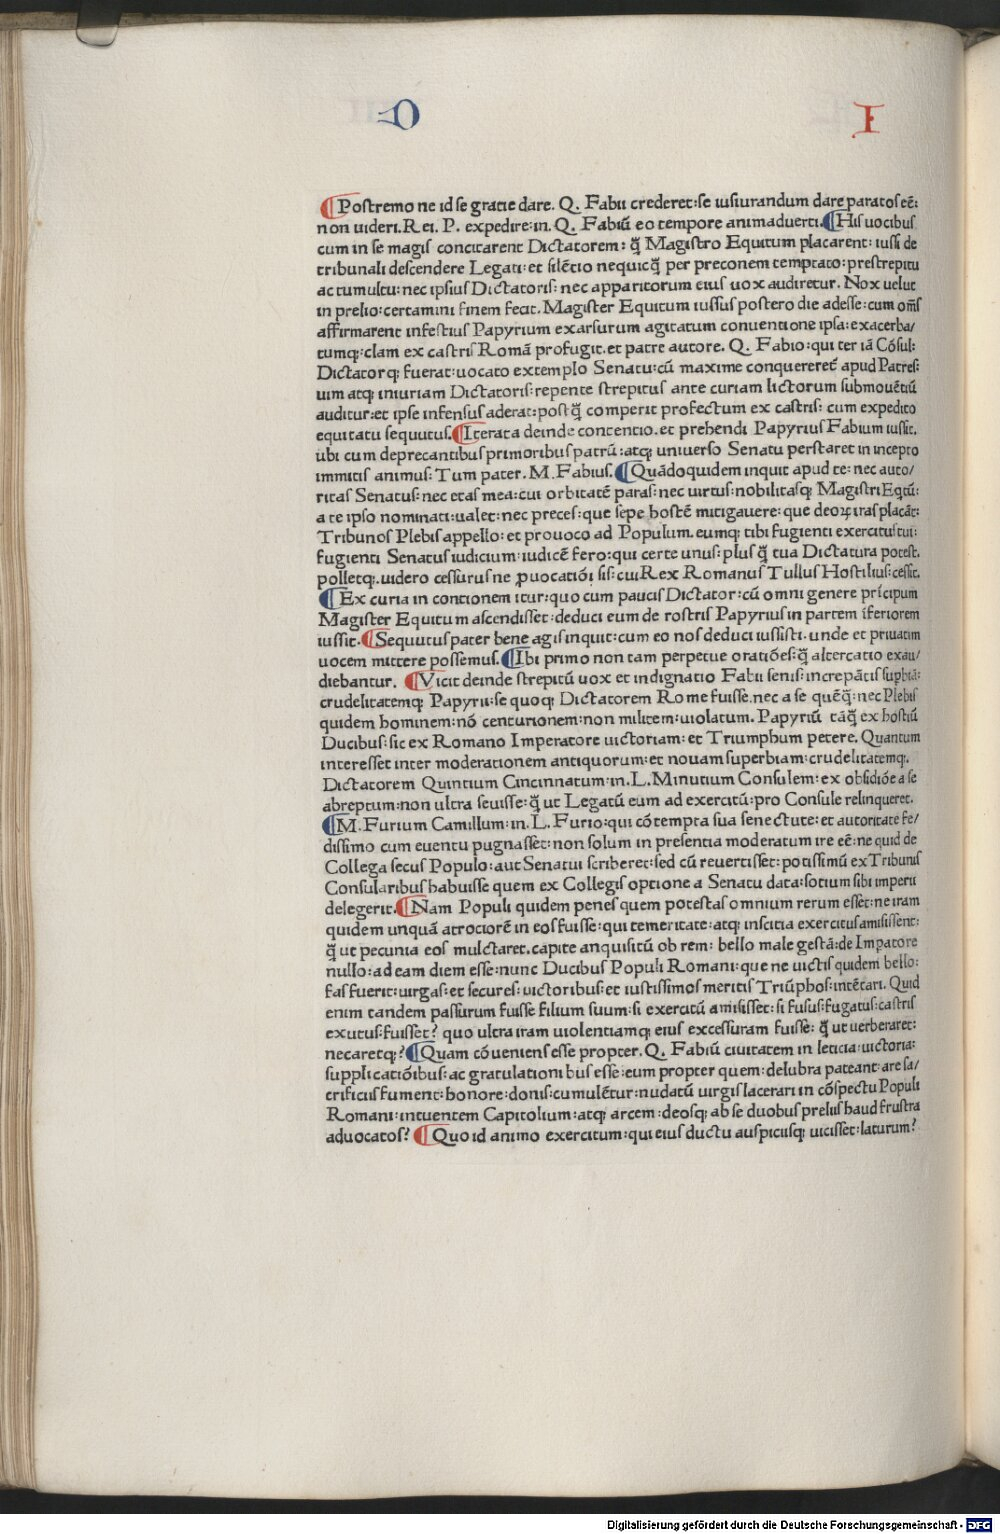 D I
¶Postremo ne id se gratie dare. Q. Fabii crederet:se iusiurandum dare paratos eē:
non uideri.Rei. P. expedire:in. Q. Fabiū eo tempore animaduerti.¶His uocibus
cum in se magis concitarent Dictatorem: q̄ Magistro Equitum placarent: iussi de
tribunali descendere Legati: et silētio nequicq̄ per preconem temptato: prestrepitu
ac tumultu: nec ipsius Dictatoris: nec apparitorum eius uox audiretur. Nox uelut
in prelio:certamini finem fecit. Magister Equitum iussus postero die adesse:cum oms̄
affirmarent infestius Papyrium exarsurum agitatum conuentione ipsa:exacerba/
tumq;:clam ex castris Romā profugit.et patre autore. Q. Fabio:qui ter iā Cōsul:
Dictatorq; fuerat:uocato extemplo Senatu:cū maxime conquereret̄ apud Patres:
uim atq; iniuriam Dictatoris:repente strepitus ante curiam lictorum submouētiū
auditur:et ipse infensus aderat:postq̄ comperit profectum ex castris: cum expedito
equitatu sequutus.¶Iterata deinde contentio.et prehendi Papyrius Fabium iussit.
ubi cum deprecantibus primoribus patrū:atq; uniuerso Senatu perstaret in incepto
immitis animus:Tum pater. M. Fabius.¶Quādoquidem inquit apud te:nec auto/
ritas Senatus:nec etas mea:cui orbitatē paras:nec uirtus:nobilitasq; Magistri Eqtū:
a te ipso nominati:ualet:nec preces:que sepe hostē mitigauere:que deoꝝ iras placāt:
Tribunos Plebis appello: et prouoco ad Populum.eumq; tibi fugienti exercitus tui:
fugienti Senatus iudicium:iudicē fero:qui certe unus:plus q̄ tua Dictatura potest.
polletq;.uidero cessurus ne ꝓuocatiōi sis:cui Rex Romanus Tullus Hostilius:cessit.
¶Ex curia in contionem itur:quo cum paucis Dictator:cū omni genere prīcipum
Magister Equitum ascendisset:deduci eum de rostris Papyrius in partem īferiorem
iussit.¶Sequutus pater bene agis inquit:cum eo nos deduci iussisti.unde et priuatim
uocem mittere possemus.¶Ibi primo non tam perpetue oratiōes:q̄ altercatio exau/
diebantur. ¶Vicit deinde strepitū uox et indignatio Fabii senis:increpātis supbiā:
crudelitatemq; Papyrii:se quoq; Dictatorem Rome fuisse.nec a se quēq̄:nec Plebis
quidem hominem:nō centurionem:non militem:uiolatum. Papyriū tāq̄ ex hostiū
Ducibus:sic ex Romano Imperatore uictoriam:et Triumphum petere. Quantum
interesset inter moderationem antiquorum:et nouam superbiam:crudelitatemq;.
Dictatorem Quintium Cincinnatum:in.L.Minutium Consulem:ex obsidiōe a se
abreptum:non ultra seuisse:q̄ ut Legatū eum ad exercitū:pro Consule relinqueret.
¶M.Furium Camillum:in.L.Furio:qui cōtempta sua senectute:et autoritate fe/
dissimo cum euentu pugnasset:non solum in presentia moderatum ire eē:ne quid de
Collega secus Populo:aut Senatui scriberet:sed cū reuertisset:potissimū ex Tribunis
Consularibus habuisse quem ex Collegis optione a Senatu data:sotium sibi imperii
delegerit.¶Nam Populi quidem penes quem potestas omnium rerum esset:ne iram
quidem unquā atrociorē in eos fuisse:qui temeritate:atq; inscitia exercitus amisissent:
q̄ ut pecunia eos mulctaret.capite anquisitū ob rem: bello male gestā:de Impatore
nullo:ad eam diem esse:nunc Ducibus Populi Romani:que ne uictis quidem bello:
fas fuerit:uirgas:et secures:uictoribus:et iustissimos meritis Triūphos:intētari. Quid
enim tandem passurum fuisse filium suum:si exercitū amisisset:si fusus:fugatus:castris
exutus:fuisset? quo ultra iram uiolentiamq; eius excessuram fuisse: q̄ ut uerberaret:
necaretq;?¶Quam cōueniens esse propter. Q. Fabiū ciuitatem in leticia:uictoria:
supplicatiōibus:ac gratulationibus esse:eum propter quem:delubra pateant:are sa/
crificiis fument:honore:donis:cumulētur:nudatū uirgis lacerari in cōspectu Populi
Romani:intuentem Capitolium:atq; arcem:deosq; ab se duobus preliis haud frustra
aduocatos?¶Quo id animo exercitum:qui eius ductu auspiciisq; uicisset:laturum?
Digitalisierung gefördert durch die Deutsche Forschungsgemeinschaft - DFG